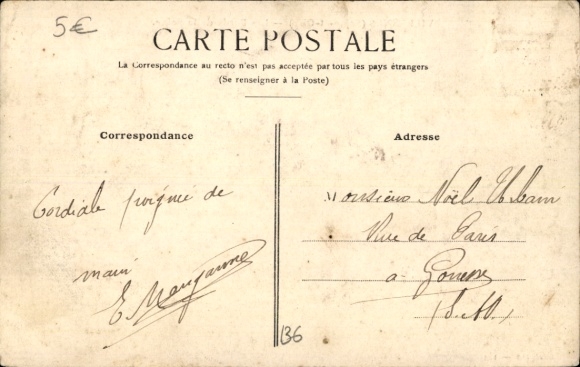 5€
CARTE POSTALE
La Correspondance au recto n'est pas acceptée par tous les pays étrangers
(Se renseigner à la Poste)
Correspondance
Adresse
Cordiale poignée de
main
E.
Monsieur Noël Urbain
Rue de Paris
a Gonesse
(S.&O.)
136